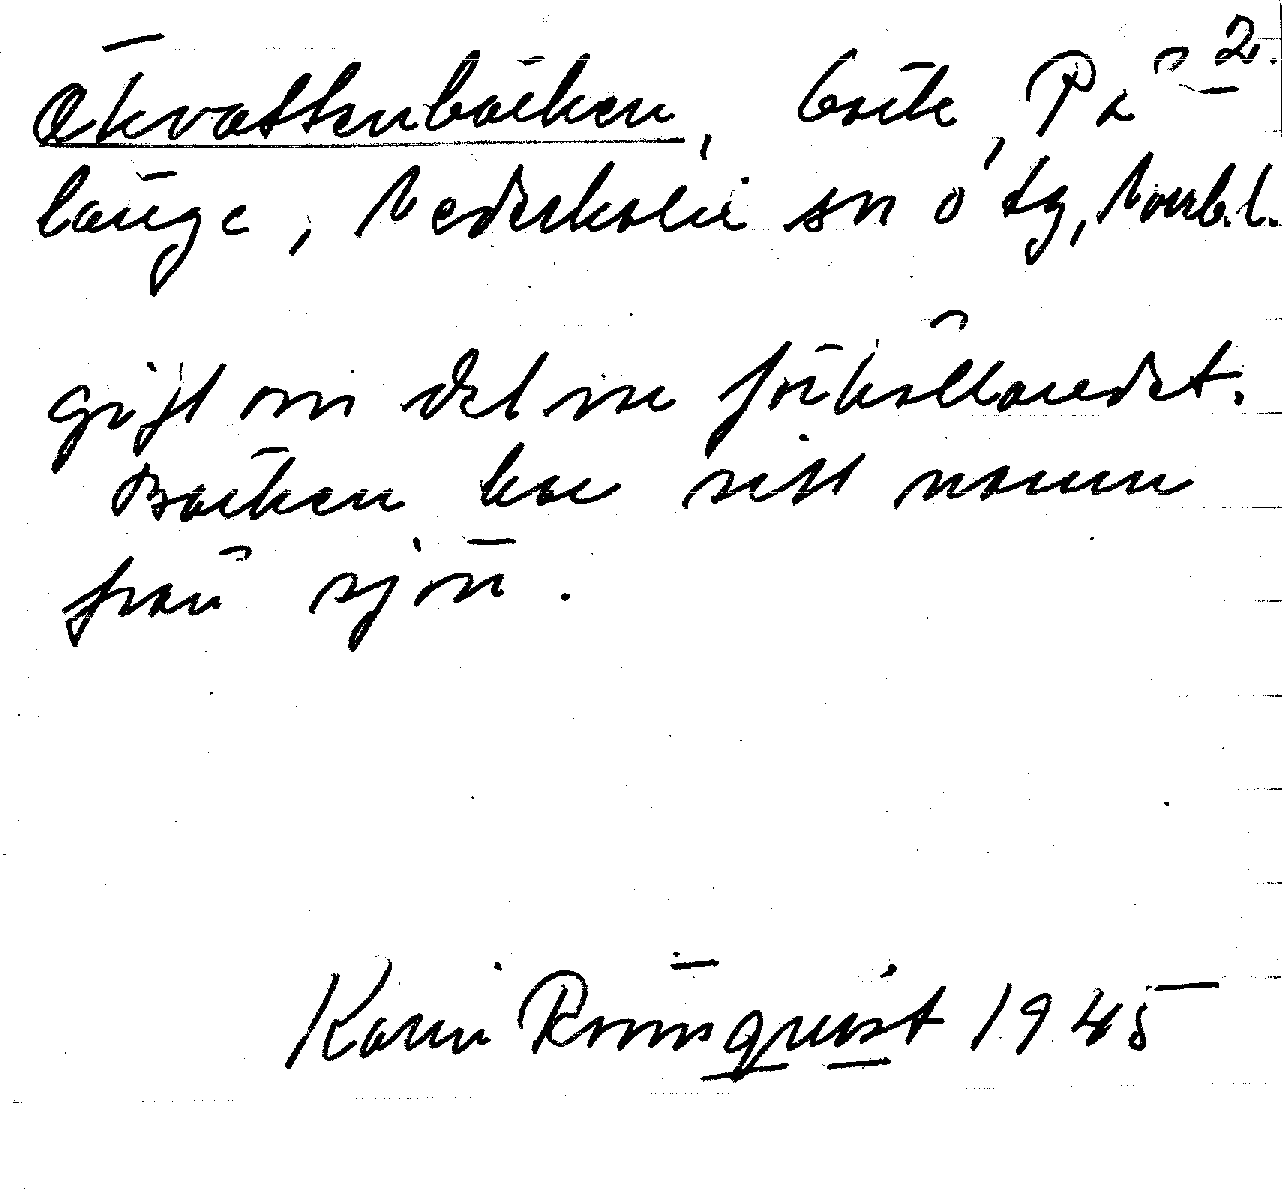 Ökvattenbäcken, bäck, På- 2.
länge, Nederkalix sn o tg, Norrb.l.
gift om förhållandet.
Bäcken har sitt namn
från sjön.
Karin Rönnqvist 1945